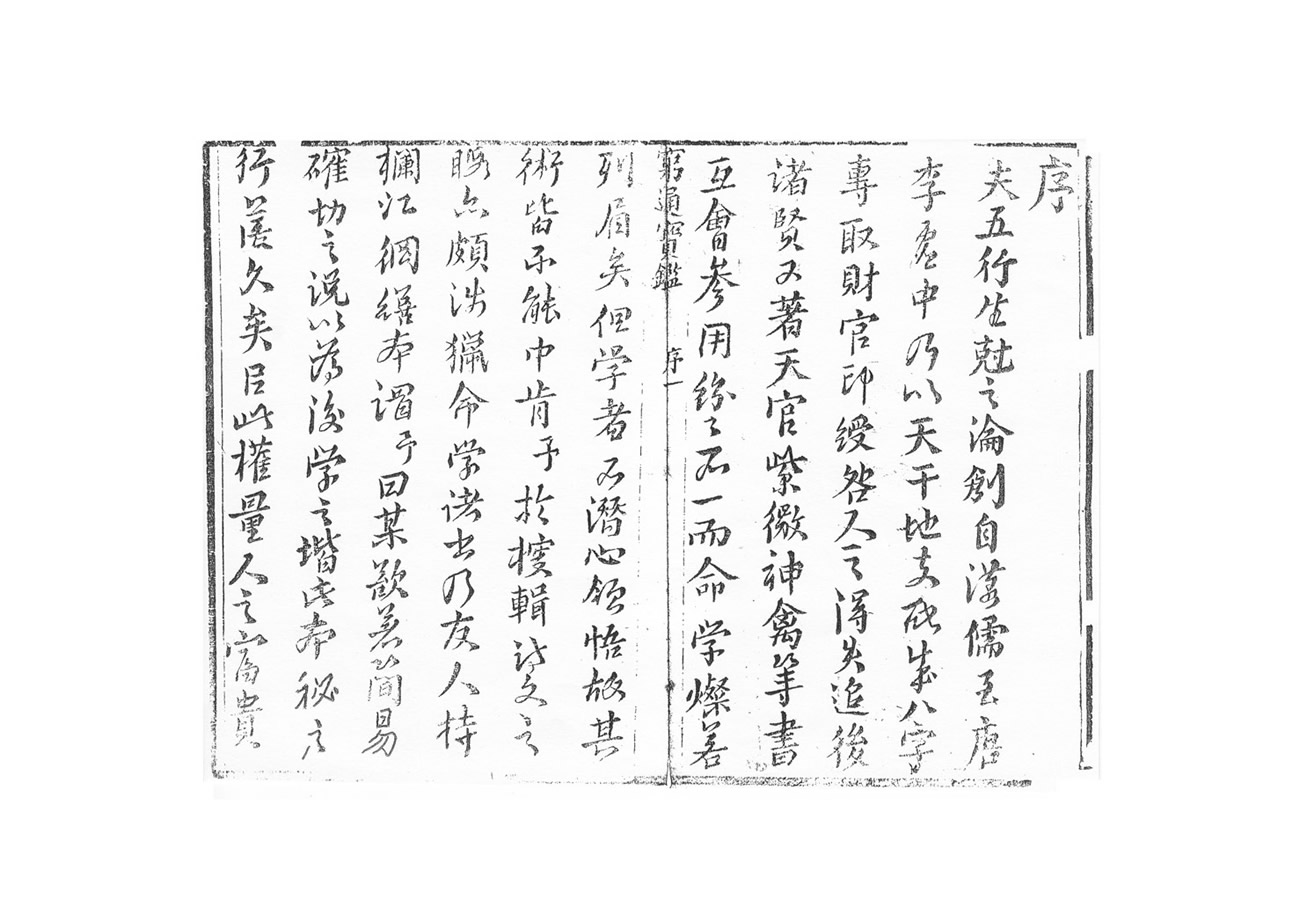 序
夫五行生尅之淪創自漢儒至唐
李虛中乃以天干地支配成八字
專取財官印綬咎人之得失追後
諸賢又著天官紫微神禽等書
互會參用紛々不一而命学燦若
窮通寶鑑 序 一
列眉矣但学者不潛心領悟故其
術皆不能中肯予於搜輯詩文之
暇亦頗涉獵命学诸书乃友人持
欄江網繕本謂予曰某欲着简易
確切之说以為後学之堦此本秘之
行篋久矣目此權量人之富貴